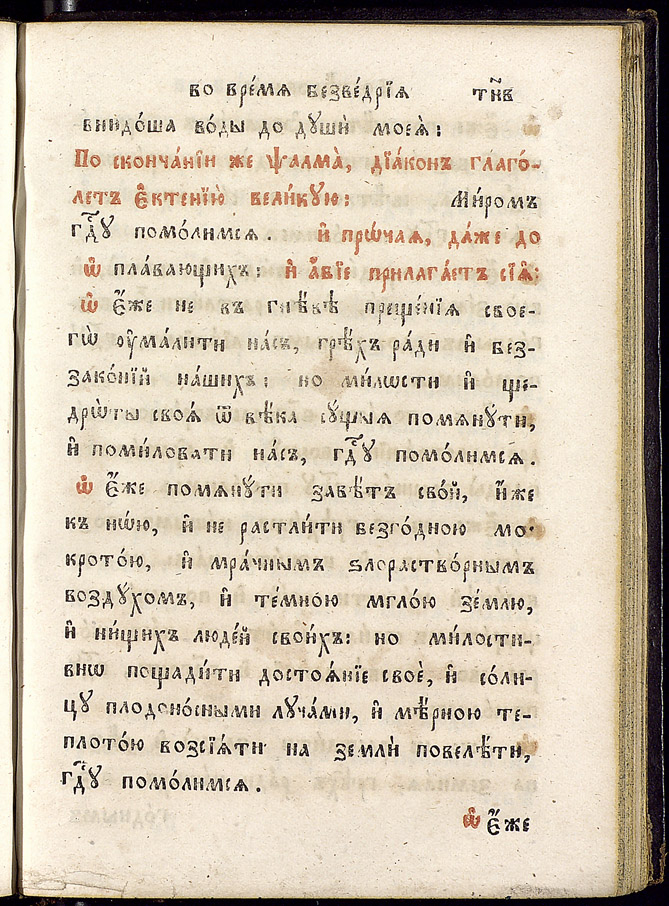 во вре́мѧ безве́дрїѧ тн҃в
внидо́ша во́ды до дꙋшѝ моеѧ̀:
По сконча́нїи же ѱалма̀, дїа́конъ глаго́-
летъ є҆ктенїю̀ вели́кꙋю: Ми́ромъ
гдⷭ҇ꙋ помо́лимсѧ и҆ прѡ́чаѧ, да́же до
ѡ҆ пла́вающихъ: и҆ а҆́бїе прилага́етъ сїѧ̑:
ѡ҆ є҆́же не въ гнѣ́вѣ преще́нїѧ свое-
гѡ̀ ᲂу҆мали́ти на́съ, грѣ̑хъ ра́ди и҆ без-
зако́нїй на́шихъ: но ми́лѡсти и҆ ще-
дрѡ́ты своѧ̑ ѿ вѣ́ка сꙋ́щыѧ помѧнꙋ́ти,
и҆ поми́ловати на́съ, гдⷭ҇ꙋ помо́лимсѧ.
ѡ҆ є҆́же помѧнꙋ́ти завѣ́тъ сво́й, и҆́же
къ нѡ́ю, и҆ не растли́ти безго́дною мо-
крото́ю, и҆ мра́чнымъ ѕлораство́рнымъ
во́здꙋхомъ, и҆ те́мною мгло́ю зе́млю,
и҆ ни́щихъ люде́й свои́хъ: но ми́лости-
внѡ пощади́ти достоѧ́нїе своѐ, и҆ со́лн-
цꙋ плодоно́сными лꙋча́ми, и҆ мѣ́рною те-
плото́ю возсїѧ́ти на землѝ повелѣ́ти,
гдⷭ҇ꙋ помо́лимсѧ.
ѡ҆ є҆́же